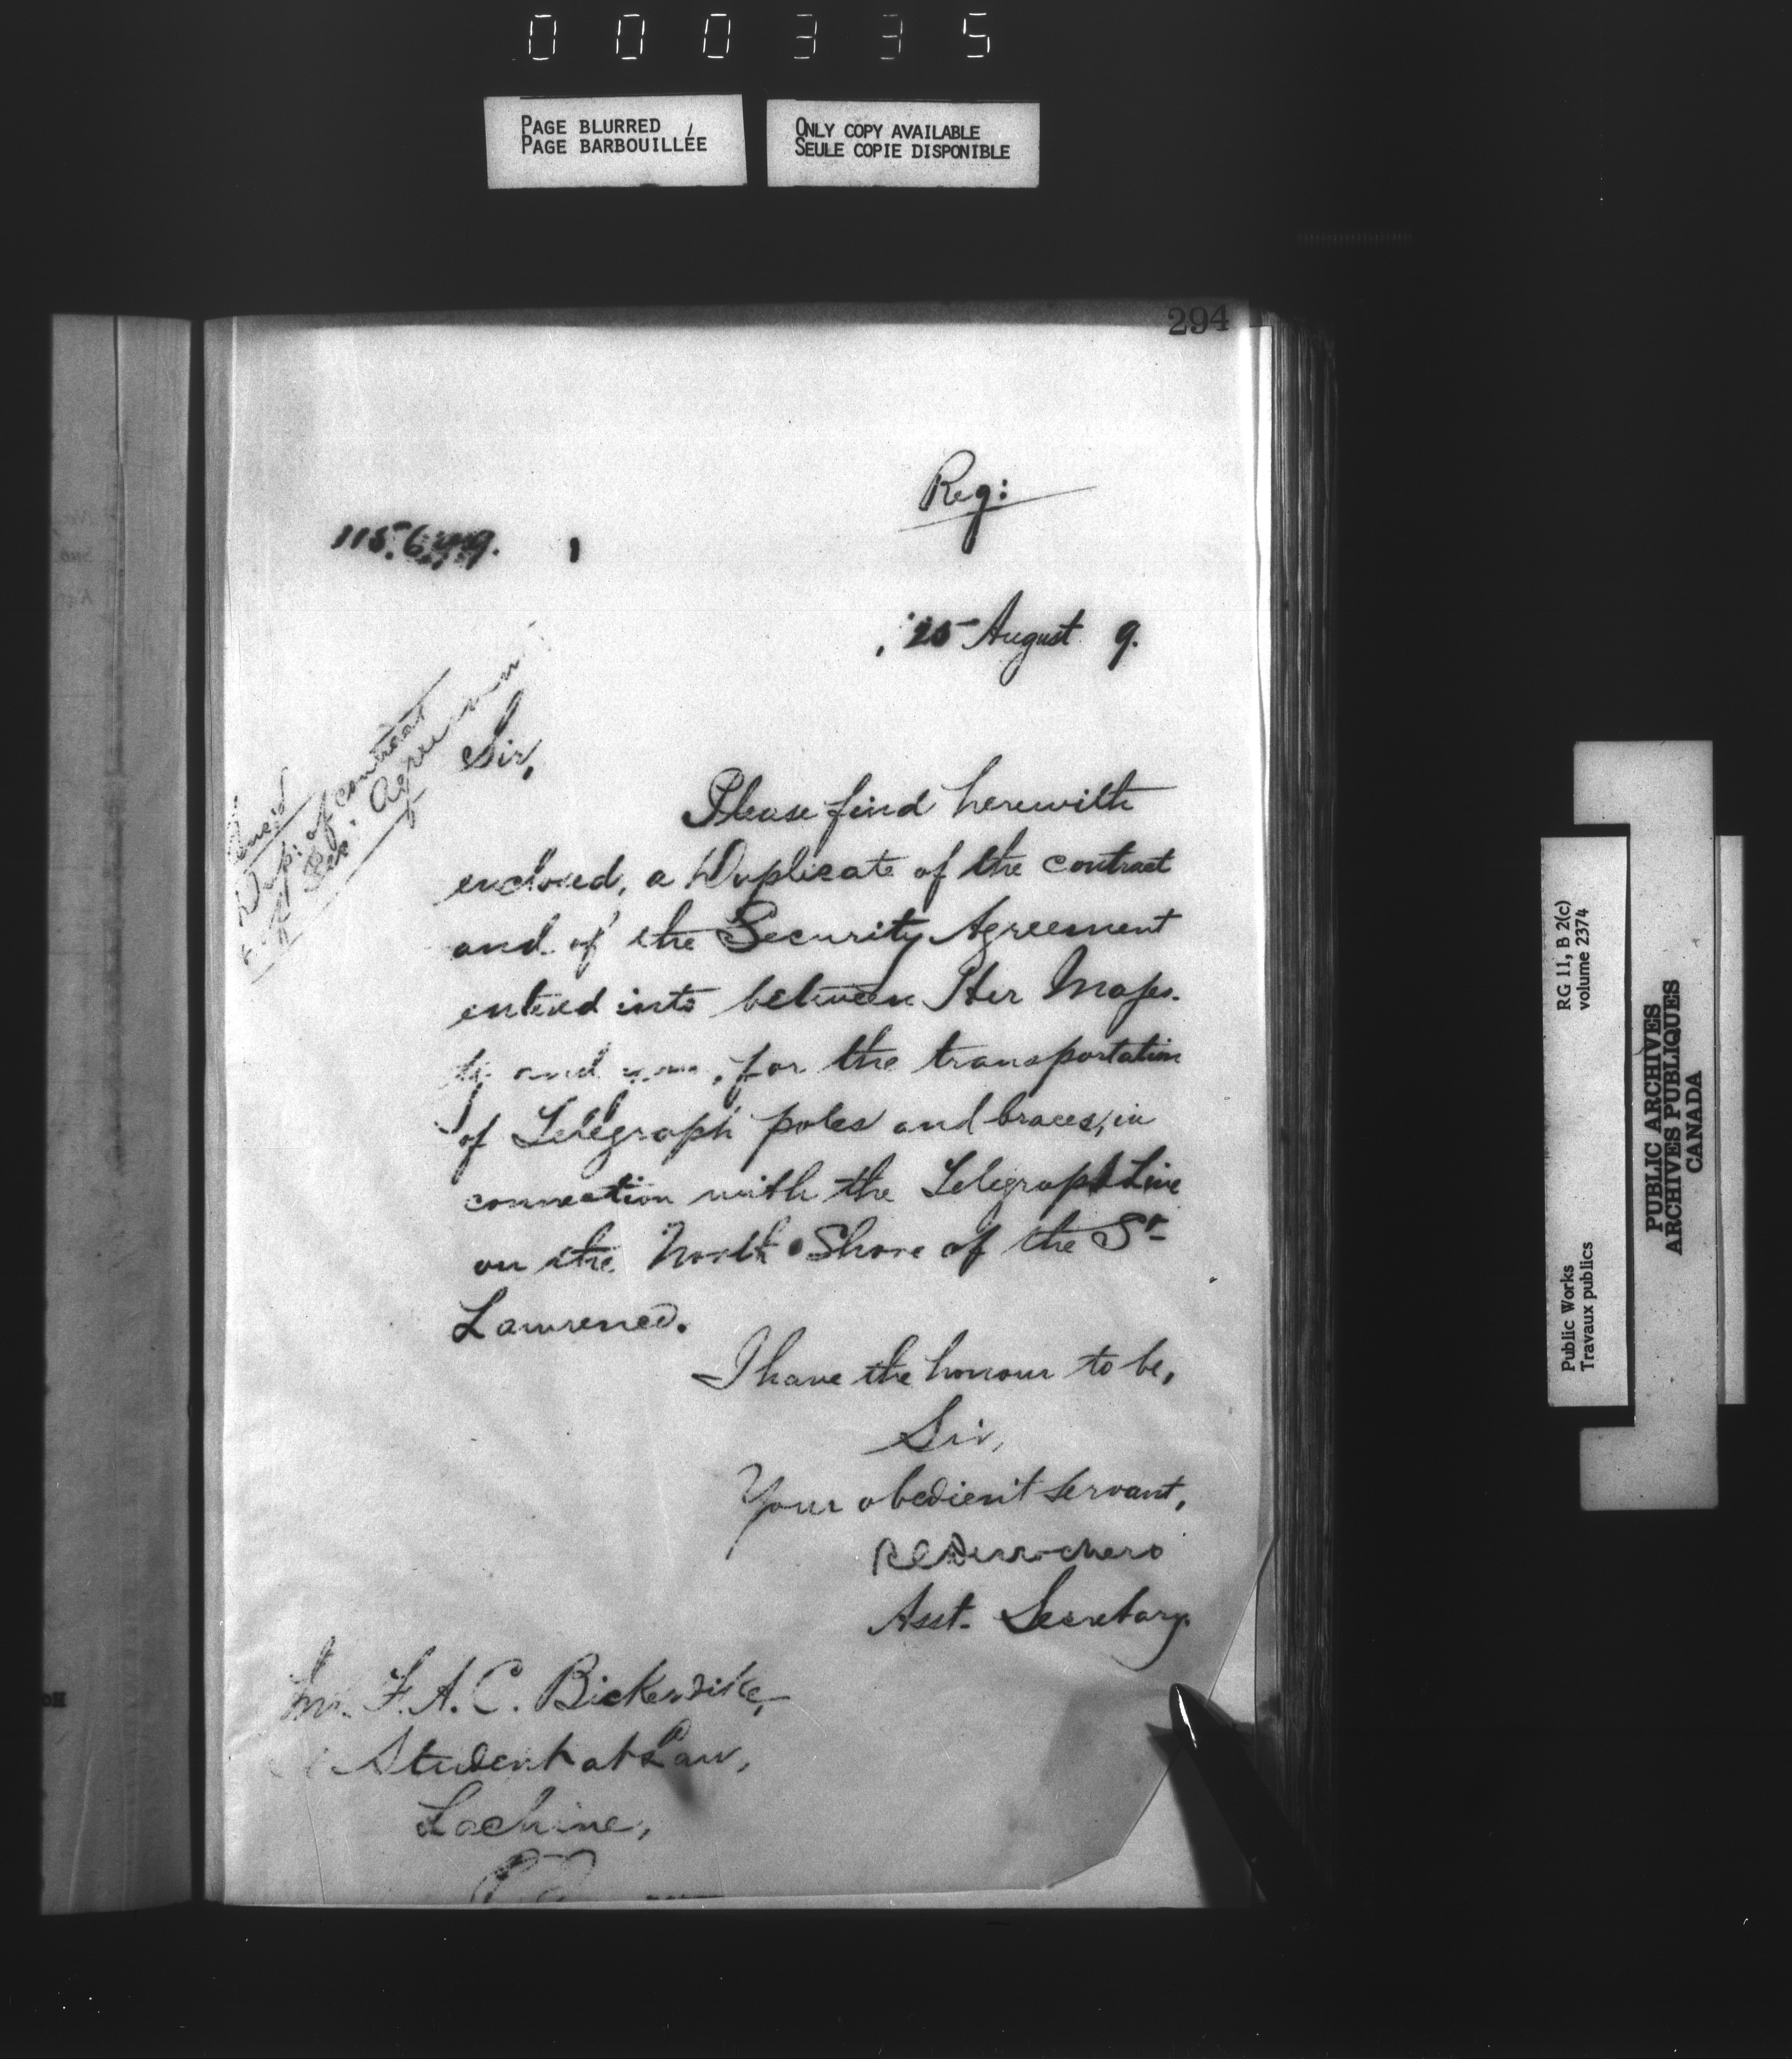 000335
PAGE BLURRED
PAGE BARBOUILLÉE
ONLY COPY AVAILABLE
SEULE COPIE DISPONIBLE
294
Reg:
25 August 9.
Enc'd
Dup. of contract
& of Sec. Agreement
Sir,
Please find herewith
enclosed, a Duplicate of the contract
and of the Security Agreement
entered into between Her Majes-
ty and you, for the transportation
of Telegraph poles and braces, in
connection with the Telegraph Line
on the North Shore of the St
Lawrence.
I have the honour to be,
Sir,
Your obedient servant,
Asst. Secretary.
Mr. F. A. C. Bickerdike,
Student at Law,
Lachine,
RG 11, B 2(c)
volume 2374
Public Works
Travaux publics
PUBLIC ARCHIVES
ARCHIVES PUBLIQUES
CANADA